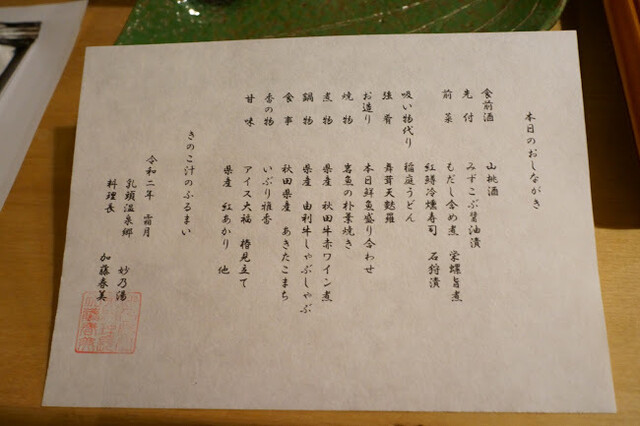 本日のおしながき
食前酒 山桃酒
先付 みずこぶ醤油漬
前菜 もだし含め煮 栄螺旨煮
紅鱒冷燻寿司 石狩漬
吸い物代り 稲庭うどん
強肴 舞茸天麩羅
お造り 本日鮮魚盛り合わせ
焼物 岩魚の朴葉焼き
煮物 県産 秋田牛赤ワイン煮
鍋物 県産 由利牛しゃぶしゃぶ
食事 秋田県産 あきたこまち
香の物 いぶり雅香
甘味 アイス大福 椿見立て
県産 紅あかり 他
きのこ汁のふるまい
令和二年 霜月
乳頭温泉郷 妙乃湯
料理長 加藤春美